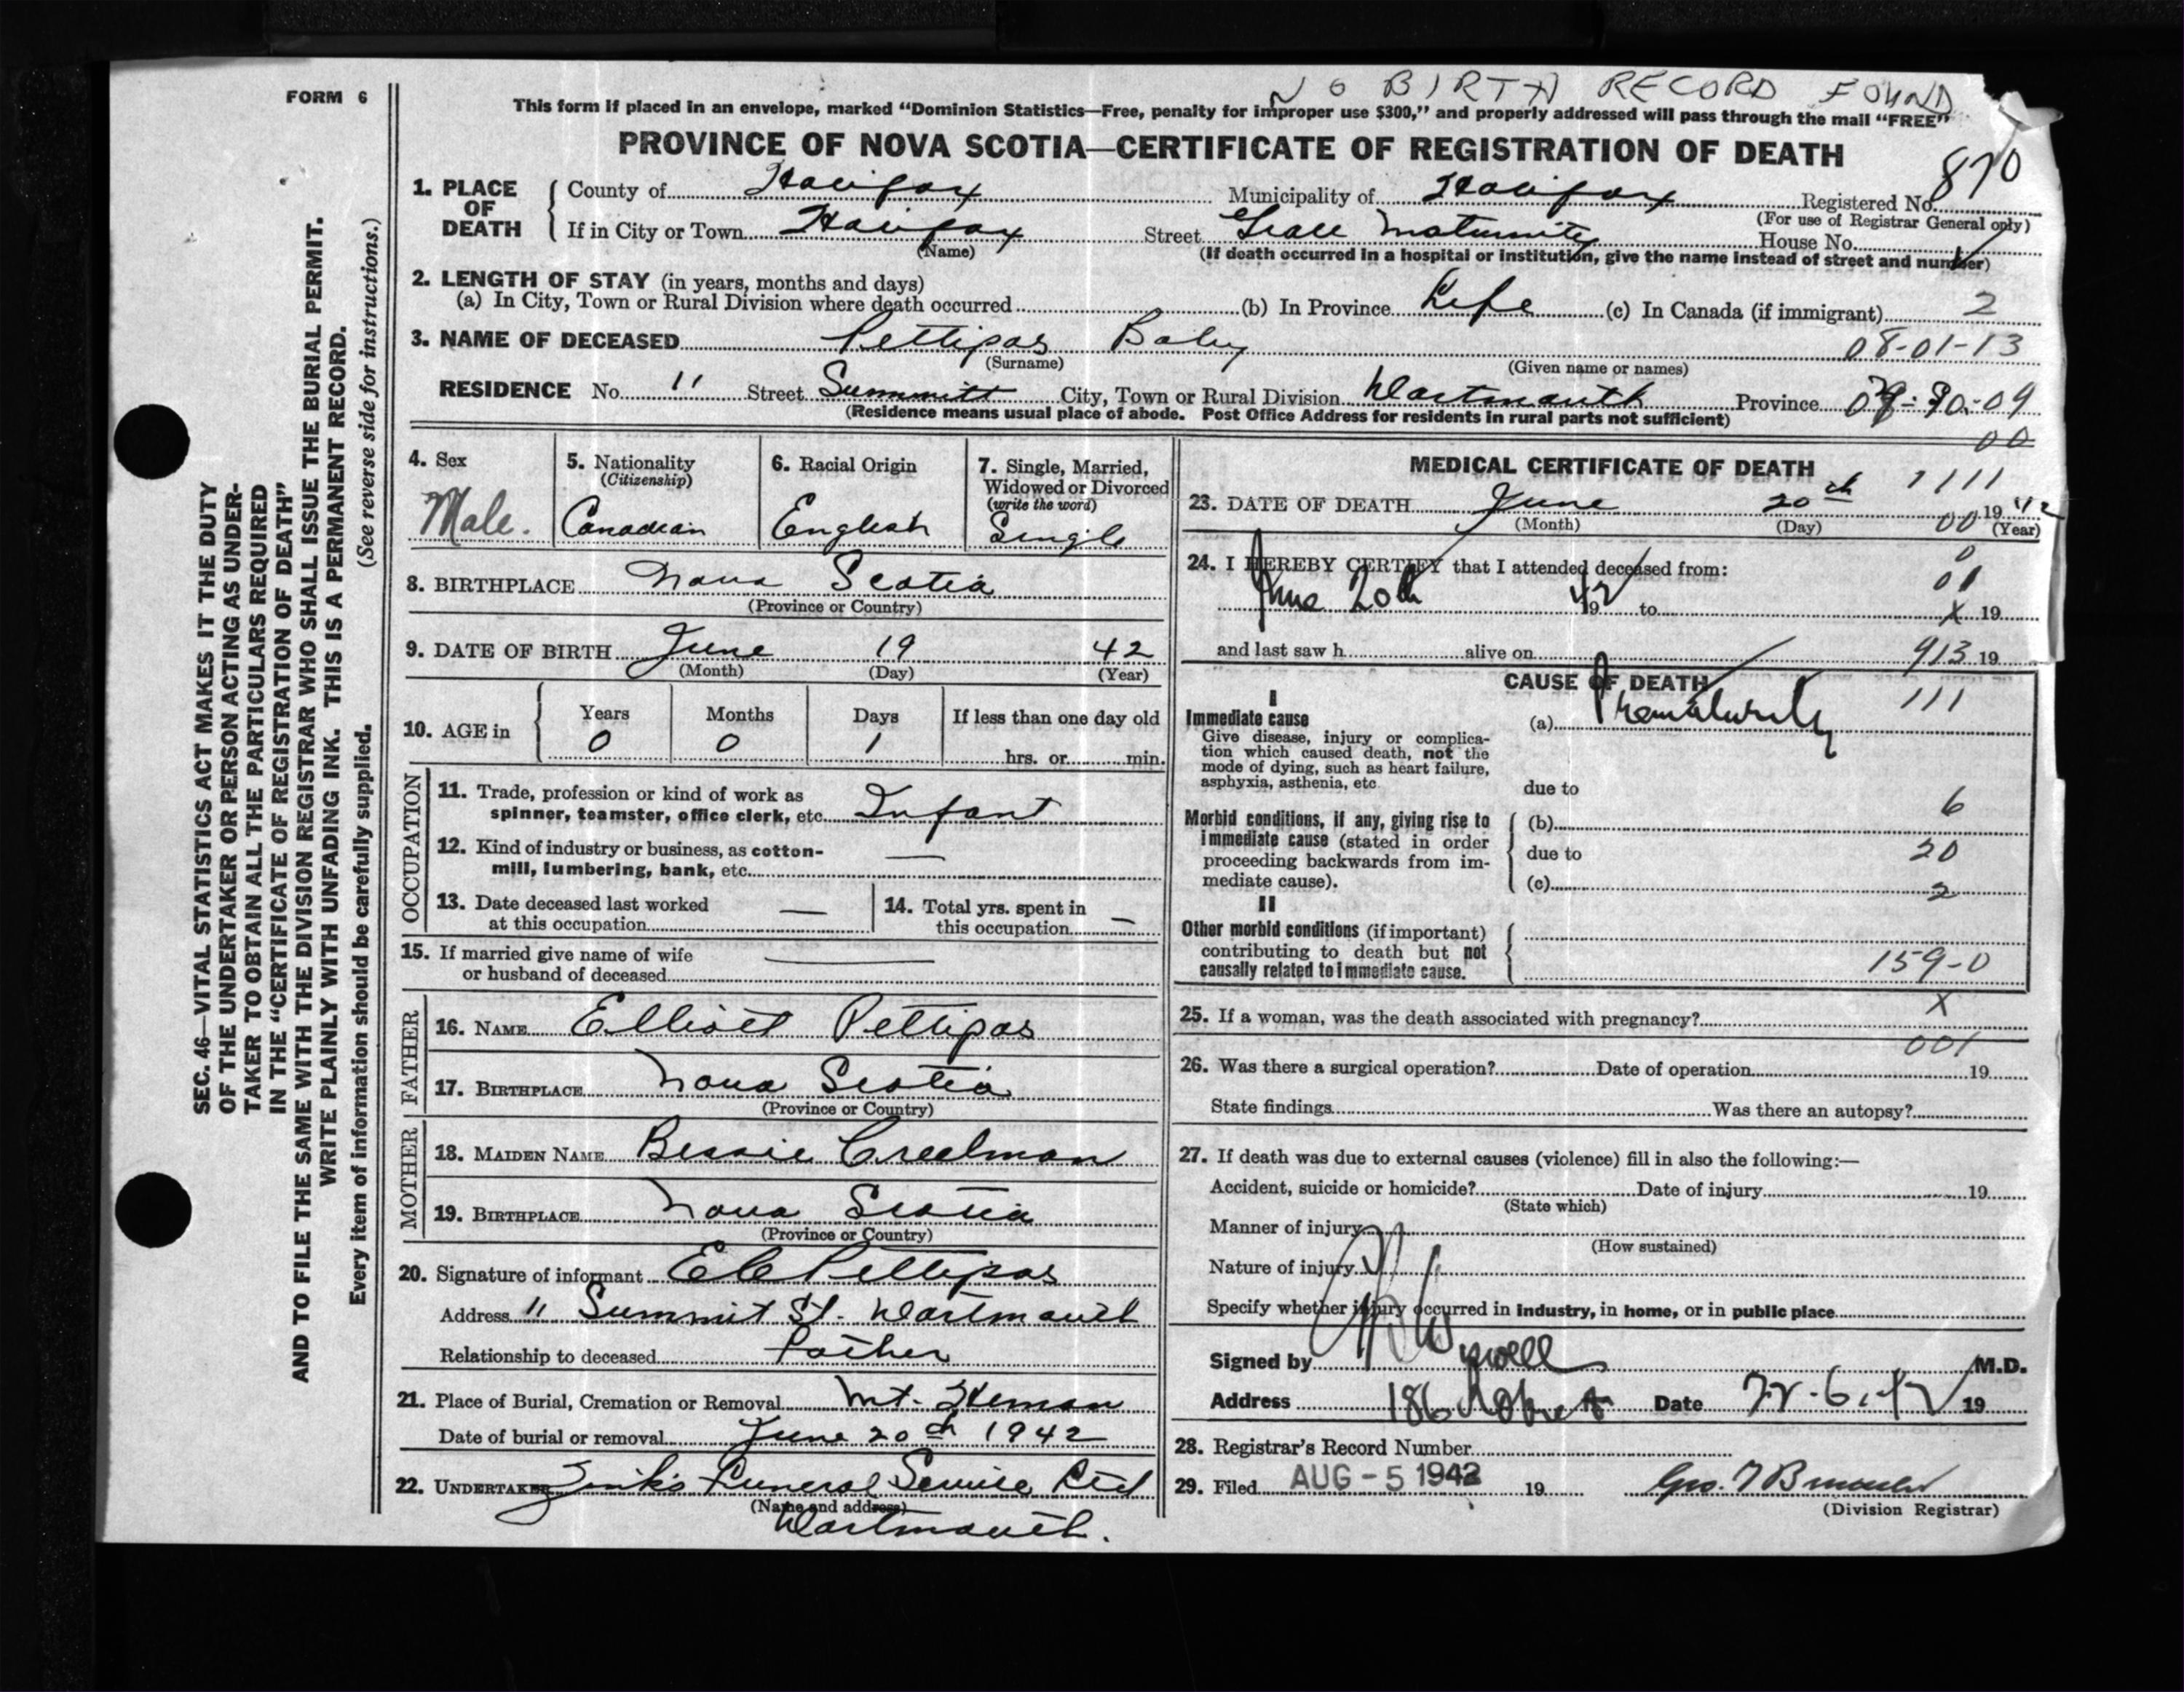 NO BIRTH RECORD FOUND
FORM 6
This form if placed in an envelope, marked “Dominion Statistics—Free, penalty for improper use $300,” and properly addressed will pass through the mail “FREE”
PROVINCE OF NOVA SCOTIA—CERTIFICATE OF REGISTRATION OF DEATH
870
1. PLACE OF DEATH
County of Halifax Municipality of Halifax Registered No.
(For use of Registrar General only)
If in City or Town Halifax Street Grace Maternity House No.
(Name)
(If death occurred in a hospital or institution, give the name instead of street and number)
2. LENGTH OF STAY (in years, months and days)
(a) In City, Town or Rural Division where death occurred (b) In Province Life (c) In Canada (if immigrant) 2
3. NAME OF DECEASED Pettipas Baby 08-01-13
(Surname) (Given name or names)
RESIDENCE No. 11 Street Summitt City, Town or Rural Division Dartmouth Province
(Residence means usual place of abode. Post Office Address for residents in rural parts not sufficient)
00
4. Sex
Male.
5. Nationality
(Citizenship)
Canadian
6. Racial Origin
English
7. Single, Married,
Widowed or Divorced
(write the word)
Single
8. BIRTHPLACE Nova Scotia
(Province or Country)
9. DATE OF BIRTH June 19 42
(Month) (Day) (Year)
10. AGE in
Years Months Days If less than one day old
0 0 1 hrs. or min.
OCCUPATION
11. Trade, profession or kind of work as
spinner, teamster, office clerk, etc. Infant
12. Kind of industry or business, as cotton-
mill, lumbering, bank, etc. —
13. Date deceased last worked
at this occupation —
14. Total yrs. spent in
this occupation —
15. If married give name of wife
or husband of deceased —
FATHER
16. NAME Elliott Pettipas
17. BIRTHPLACE Nova Scotia
(Province or Country)
MOTHER
18. MAIDEN NAME Bessie Creelman
19. BIRTHPLACE Nova Scotia
(Province or Country)
20. Signature of informant E C Pettipas
Address 11 Summit St. Dartmouth
Relationship to deceased Father
21. Place of Burial, Cremation or Removal Mt. Herman
Date of burial or removal June 20th 1942
22. UNDERTAKER Zink's Funeral Service Ltd
(Name and address)
Dartmouth.
MEDICAL CERTIFICATE OF DEATH
1111
23. DATE OF DEATH June 20th 19 42
(Month) (Day) 00 (Year)
0
24. I HEREBY CERTIFY that I attended deceased from:
01
June 20th 1942 to X 19
and last saw h alive on 913 19
CAUSE OF DEATH
111
I
Immediate cause
Give disease, injury or complica-
tion which caused death, not the
mode of dying, such as heart failure,
asphyxia, asthenia, etc
(a) Prematurity
due to
Morbid conditions, if any, giving rise to
immediate cause (stated in order
proceeding backwards from im-
mediate cause).
(b) 6
due to 20
(c) 2
II
Other morbid conditions (if important)
contributing to death but not
causally related to immediate cause.
159-0
X
25. If a woman, was the death associated with pregnancy?
001
26. Was there a surgical operation? Date of operation 19
State findings Was there an autopsy?
27. If death was due to external causes (violence) fill in also the following:—
Accident, suicide or homicide? Date of injury 19
(State which)
Manner of injury
(How sustained)
Nature of injury
Specify whether injury occurred in industry, in home, or in public place
Signed by M.D.
Address 186 Date 19
28. Registrar's Record Number
29. Filed AUG - 5 1942 19
(Division Registrar)
SEC. 46—VITAL STATISTICS ACT MAKES IT THE DUTY
OF THE UNDERTAKER OR PERSON ACTING AS UNDER-
TAKER TO OBTAIN ALL THE PARTICULARS REQUIRED
IN THE “CERTIFICATE OF REGISTRATION OF DEATH”
AND TO FILE THE SAME WITH THE DIVISION REGISTRAR WHO SHALL ISSUE THE BURIAL PERMIT.
WRITE PLAINLY WITH UNFADING INK. THIS IS A PERMANENT RECORD.
Every item of information should be carefully supplied. (See reverse side for instructions.)